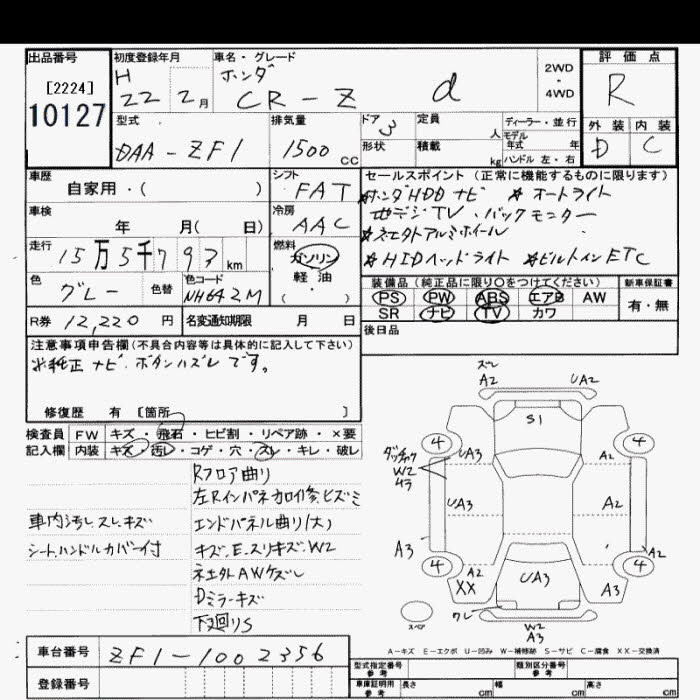 出品番号
[2224]
10127
初度登録年月
H
22 2月
車名・グレード
ホンダ
CR-Z α
2WD
・
4WD
評価点
R
外装 内装
D C
型式
DAA-ZF1
排気量
1500cc
ドア
3
形状
定員
人
積載
kg
ディーラー・並行
モデル
年式 年
ハンドル 左・右
車歴
自家用・( )
シフト
FAT
車検
年 月( 日)
冷房
AAC
走行
15万5千797km
燃料
ガソリン
軽油
・( )
色
グレー
色替
色コード
NH642M
R券 12,220円
名変通知期限 月 日
セールスポイント (正常に機能するものに限ります)
*ホンダHDDナビ *オートライト
地デジTV・バックモニター
*ネエクトアルミホイール
*HIDヘッドライト *ビルトインETC
装備品(純正品に限り○をつけてください)
PS PW ABS エアB AW
SR ナビ TV カワ
新車保証書
有・無
後日品
注意事項申告欄(不具合内容等は具体的に記入して下さい)
※純正ナビ.ボタンハズレです。
修復歴 有 [箇所 ]
検査員
記入欄
FW キズ・飛石・ヒビ割・リペア跡・×要
内装 キズ・汚し・コゲ・穴・スレ・キレ・破レ
Rフロア曲り
左Rインパネカロイ修、ヒズミ
車内汚し スレ.キズ エンドパネル曲り(大)
シート、ハンドルカバー付 キズ.E.スリキズ.W2
ネエクトAWケズレ
Dミラーキズ
下廻りS
ズレ
A2 UA2
S1
4 4
ダッチャク
W2
UA3 A2
UA3 A2
A3 A2
4 4
XX A2 UA3 A3
ワレ
スペア
W2
A3
A-キズ E-エクボ U-凹み W-補修跡 S-サビ C-腐食 XX-交換済
車台番号 ZF1-1002356
登録番号
型式指定番号
参考
類別区分番号
参考
車庫証明用
参考
長さ cm 幅 cm 高さ cm